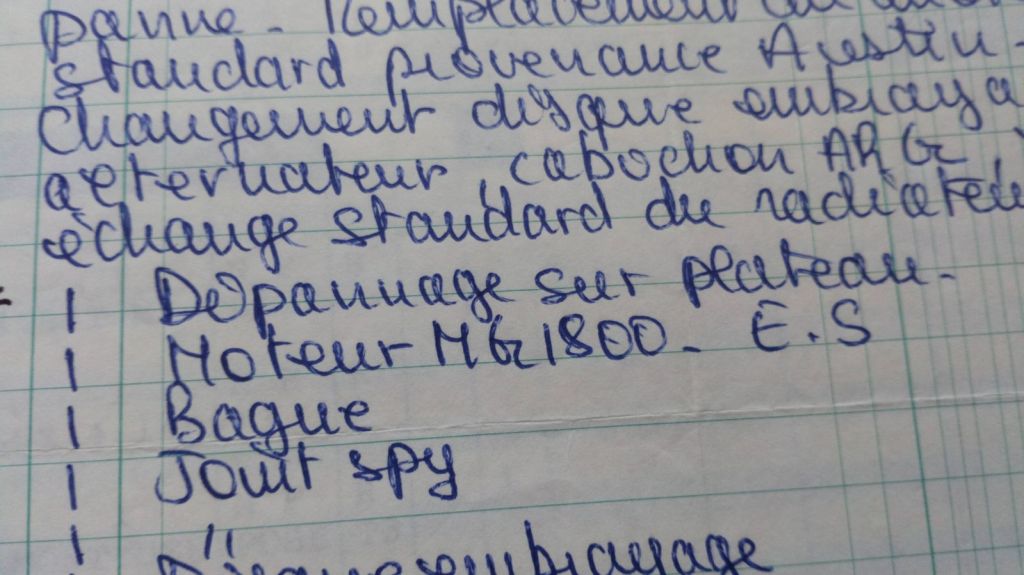 panne - Remplacement du
standard provenance Austin -
Changement disque embraya
alternateur, cabochon AR G
échange standard du radiateu
1 Dépannage sur plateau -
1 Moteur MG 1800 - E.S
1 Bague
1 Joint spy
1 "
Disque embrayage